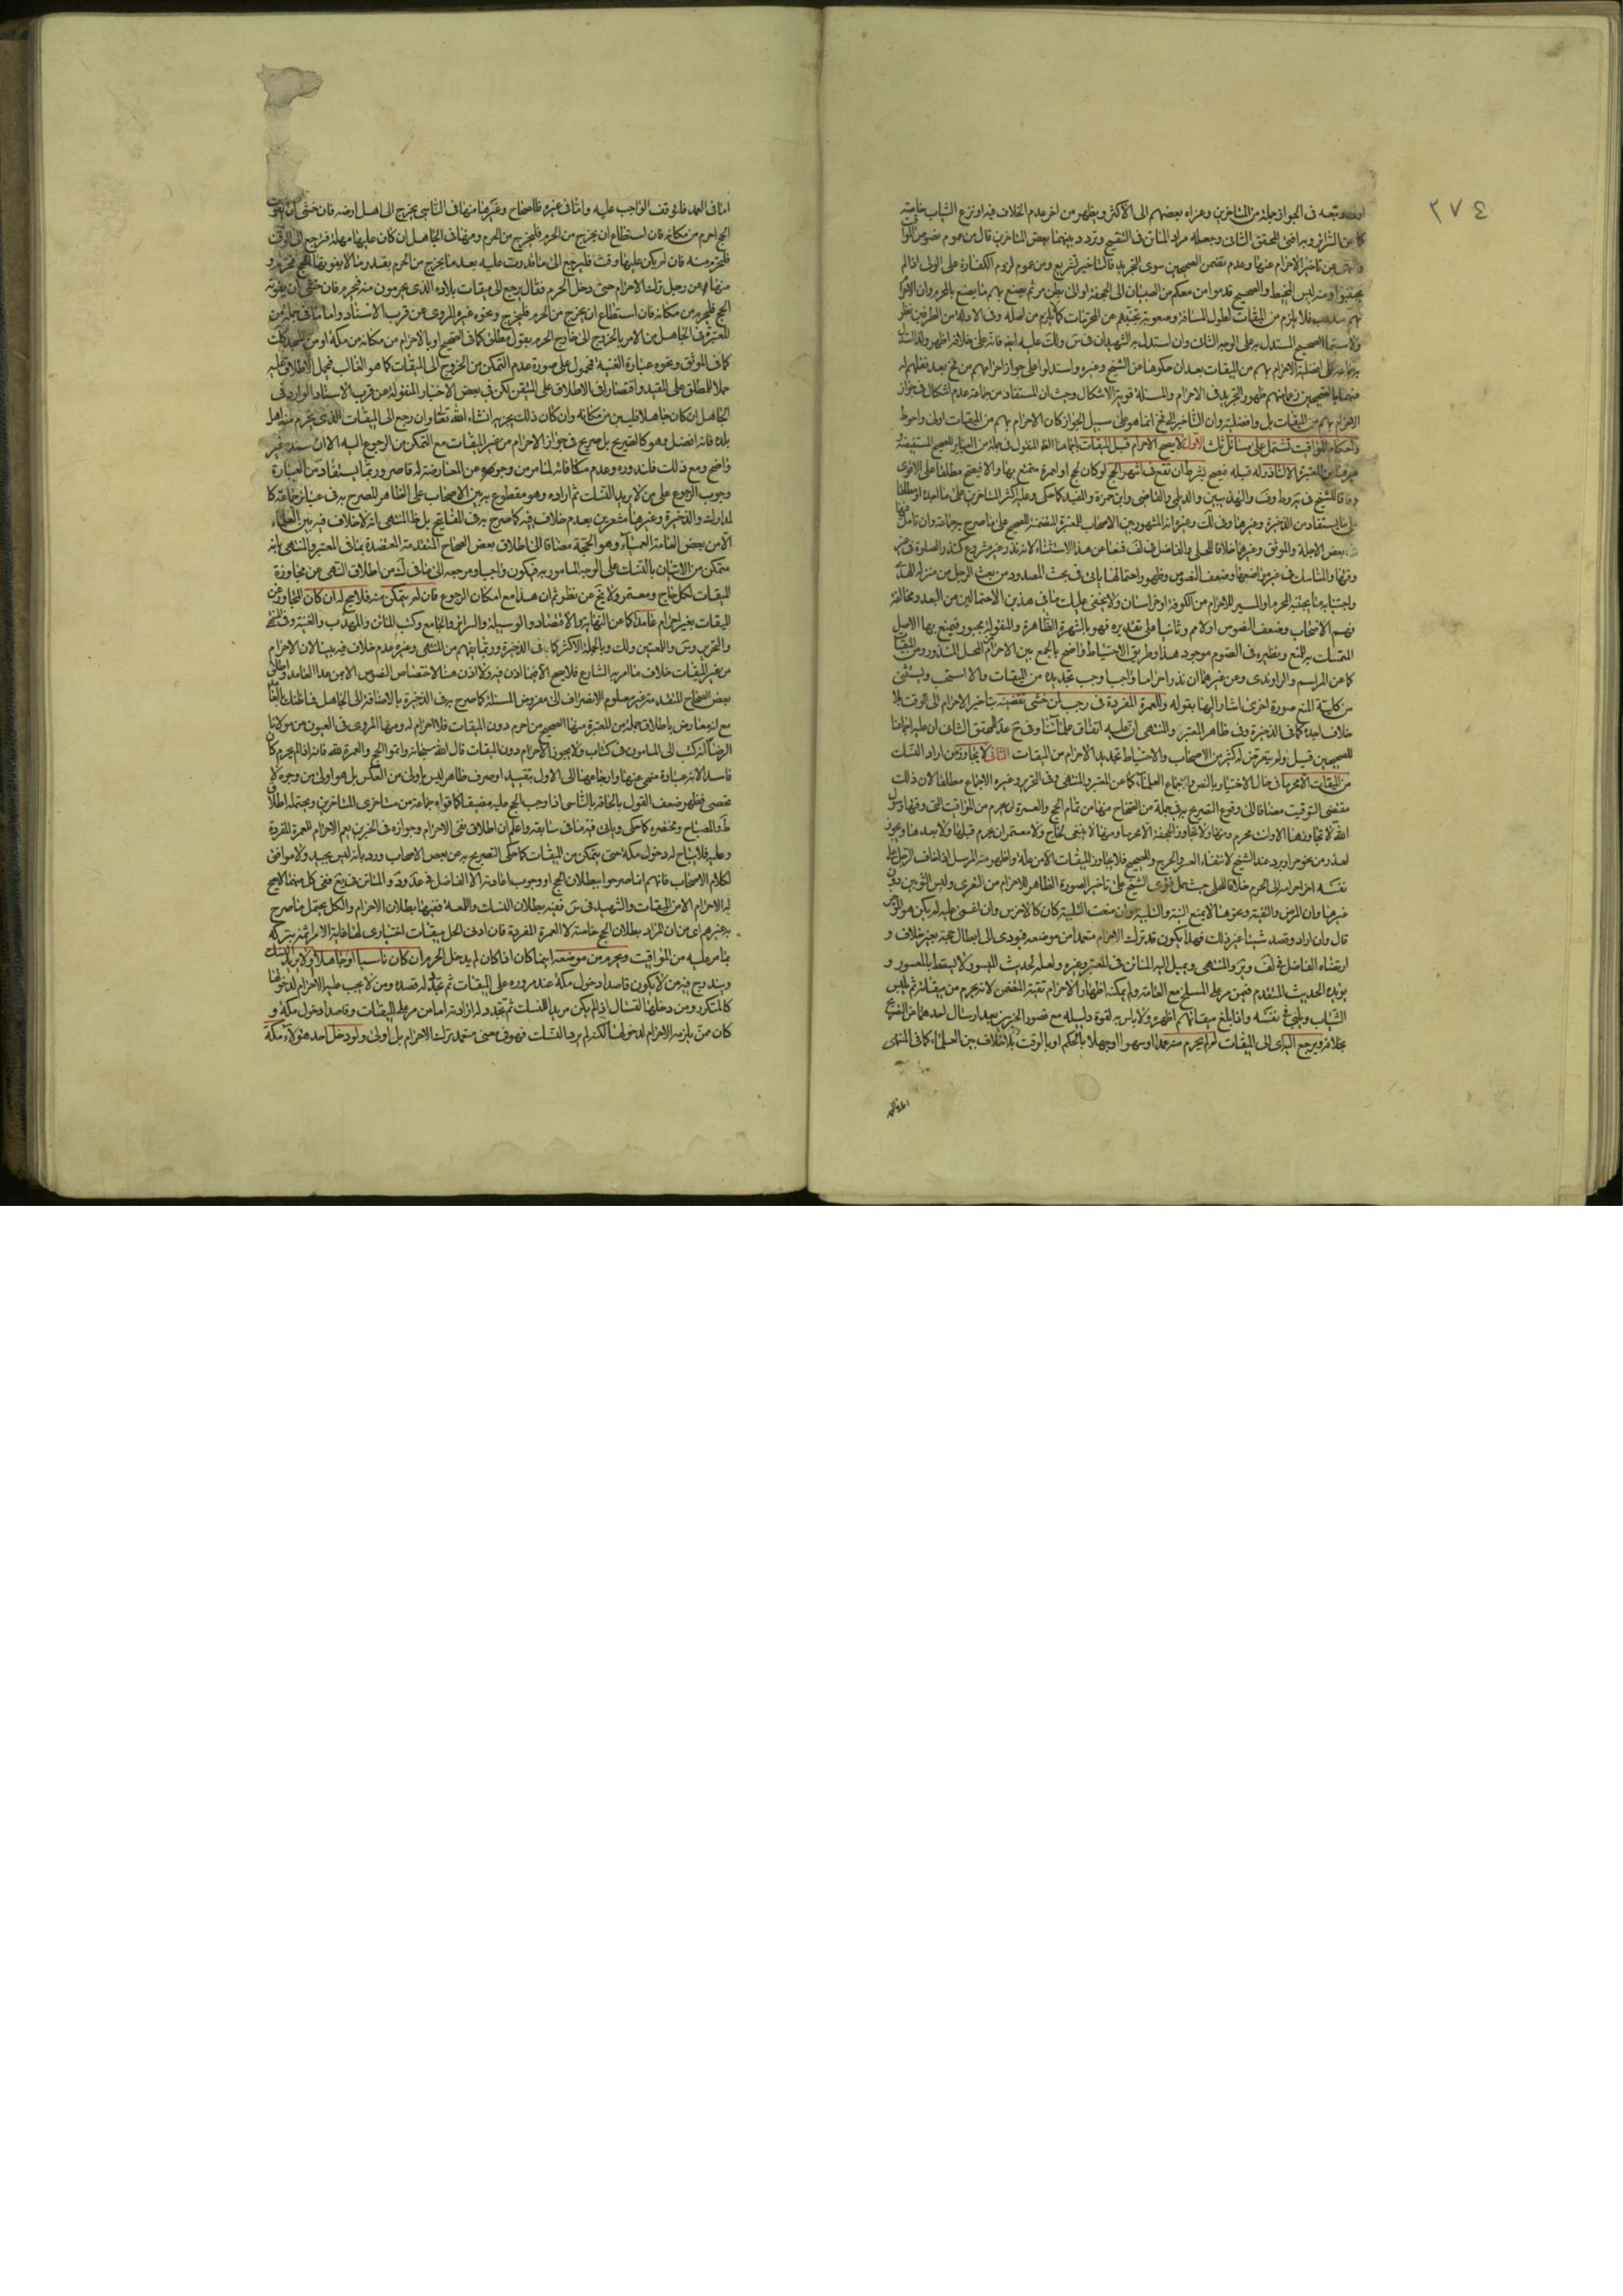 ٢٧٤
وتبعه في الجواز جملة من المتاخرين وعزاه بعضهم الى الاكثر ويظهر من اخر عدم الخلاف فيه او نزع الثياب خاصة
كما عن السرائر وبه افتى المحقق الثاني وجعله مراد الماتن في التنقيح وتردد بينهما بعض المتاخرين قال من عموم نصوص
عن تاخير الاحرام عنها وعدم تضمن الصحيحين سوى التجريد فالتاخير تشريع ومن عموم لزوم الكفارة على الولي اذا لم
يجتنبوا ومنه لبس المخيط والصحيح قدموا من معكم من الصبيان الى الجحفة او الى بطن مر ثم يصنع بهم ما يصنع بالمحرم وان
بهم فلا يلزم من الميقات لطول المسافة وصعوبة تجنيبهم عن المحرمات كما يلزم من اصله وفي الادلة من الطرفين نظر
ولا سيما الصحيح المستدل به على الوجه الثاني وان استدل به الشهيدان في س ولك عليه ايضا فانه على خلافه اظهر ولذا استدل
به جماعة على افضلية الاحرام بهم من الميقات بعد ان حكوها عن الشيخ وغيره واستدلوا على جواز احرامهم من فخ بعد نقلهم له
عنهما بالصحيحين زعما منهم ظهور التجريد في الاحرام والمسئلة قوية الاشكال وحيث ان المستفاد من جماعة عدم اشكال في جواز
الاحرام بهم من الميقات بل وافضليته وان التاخير الى فخ انما هو على سبيل الجواز كان الاحرام بهم من الميقات اولى واحوط
واحكام المواقيت تشتمل على مسائل ثلث الاولى لا يصح الاحرام قبل الميقات اجماعا الظ المنقول في جملة من العباير للصحيح المستفيضة
وغيرها من المعتبرة الا لناذر له قبله فيصح بشرط ان تقع في اشهر الحج لو كان لحج او عمرة متمتع بها والا فيصح مطلقا على الاقوى
وفاقا للشيخ في ية وط وف والتهذيبين والديلمي والقاضي وابن حمزة والمفيد كما حكي وعليه اكثر المتاخرين على ما
يستفاد من الذخيرة وغيرها وفي لك وغيره انه المشهور بين الاصحاب للمعتبرة المتضمنة للصحيح على ما صرح به جماعة وان تامل
بعض الاجلة والموثق وغيرهما خلافا للحلي والفاضل في لف فمنعا عن هذا الاستثناء لانه نذر غير مشروع كنذر الصلوة في غير
وقتها والمناسك في غير مواضعها وضعف النصوص وظهور احتمالها ياتي في بحث المصدود من بعث الرجل من منزله الهدي
واجتنابه ما يجتنبه المحرم او المسير للاحرام من الكوفة او خراسان ولا يخفى عليك ما في هذين الاحتمالين من البعد ومخالفة
فهم الاصحاب وضعف النصوص اولا مم وثانيا على تقديره فهو بالشهرة الظاهرة والمنقولة مجبور فيمنع بها الاصل
المتمسك به للمنع ونظيره في الصوم موجود هذا وطريق الاحتياط واضح بالجمع بين الاحرام من المحل المنذور ومن الميقات
كما عن المراسم والراوندي ومن غيرهما ان نذر احراما واجبا وجب تجديده من الميقات والا استحب ويستثنى
من كلية المنع صورة اخرى اشار اليها بقوله والعمرة المفردة في رجب لمن خشي تقضيه بتاخير الاحرام الى الوقت بلا
خلاف اجده كما في الذخيرة وفي ظاهر المعتبر والمنتهى ان عليه اتفاق علمائنا وفي شرح عد للمحقق الثاني ان عليه اجماعنا
للصحيحين قيل ولم يتعرض له كثير من الاصحاب والاحتياط تجديد الاحرام من الميقات الثاني لا يجاوز من اراد النسك
من الميقات الا محرما في حال الاختيار بالنص واجماع العلماء كما عن المعتبر والمنتهى وفي التحرير وغيره الاجماع مطلقا لان ذلك
مقتضى التوقيت مضافا الى وقوع التصريح به في جملة من الصحاح منها من تمام الحج والعمرة ان يحرم من المواقيت التي وقتها رسول
الله لا تجاوزها الا وانت محرم ومنها ولا تجاوز الجحفة الا محرما ومنها لا ينبغي لحاج ولا معتمر ان يحرم قبلها ولا بعدها ويجوز
لعذر من نحو حر او برد عند الشيخ لانتفاء العسر والحرج والصحيح فلا يجاوز الميقات الا من علة واظهر منه المرسل اذا خاف الرجل على
نفسه اخر احرامه الى الحرم خلافا للحلي حيث حمل فتوى الشيخ على تاخير الصورة الظاهر للاحرام من التعري ولبس الثوبين دون
غيرها وان المرض والتقية ونحوهما لا يمنع النية والتلبية وان منعت التلبية كان كالاخرس وان اغمي عليه لم يكن هو المؤخر
قال وان اراد وقصد شيئا غير ذلك فهذا يكون قد ترك الاحرام متعمدا من موضعه فيؤدي الى ابطال حجه بغير خلاف و
ارتضاه الفاضل في لف وير والمنتهى ويميل اليه الماتن في المعتبر وغيره ولعله لحديث الميسور لا يسقط بالمعسور و
يؤيده الحديث المتقدم فيمن مر على المسلخ مع العامة ولم يمكنه اظهار الاحرام تقية المتضمن لانه يحرم من ميقاته ثم يلبس
الثياب ويلبي في نفسه واذا بلغ ميقاتهم اظهره ولا باس به لقوة دليله مع قصور الخبرين بعد ارسال احدهما عن التصريح
بخلافه ويرجع اليه الى الميقات لو لم يحرم منه عمدا او سهوا او جهلا بالحكم او بالوقت بلا خلاف بين العلماء كما في المنتهى
اما في العمد فلتوقف الواجب عليه واما في غيره فللصحاح وغيرها منها في الناسي يخرج الى اهل ارضه فان خشي ان يفوته
الحج احرم من مكانه فان استطاع ان يخرج من الحرم فليخرج من الحرم ومنها في الجاهل ان كان عليها مهلة فترجع الى الوقت
فلتحرم منه فان لم يكن عليها وقت فلترجع الى ما قدرت عليه بعد ما تخرج من الحرم بقدر ما لا يفوتها الحج فتحرم و
منها عن رجل ترك الاحرام حتى دخل الحرم فقال يرجع الى ميقات بلاده الذي يحرمون منه فيحرم فان خشي ان يفوته
الحج فليحرم من مكانه فان استطاع ان يخرج من الحرم فليخرج ونحوه غيره المروي عن قرب الاسناد واما ما في جملة من
المعتبرة في الجاهل من الامر بالخروج الى خارج الحرم بقول مطلق كما في الصحيح او بالاحرام من مكانه من مكة او من المسجد
كما في الموثق ونحوه عبارة الغنية فمحمول على صورة عدم التمكن من الخروج الى الميقات كما هو الغالب فيحمل الاطلاق عليه
حملا للمطلق على المقيد واقتصارا في الاطلاق على المتيقن لكن في بعض الاخبار المنقولة عن قرب الاسناد الوارد في
الجاهل ان كان جاهلا فليبن من مكانه وان كان ذلك يجزيه انشاء الله تعالى وان رجع الى الميقات الذي يحرم منه اهل
بلده فانه افضل وهو كالصريح بل صريح في جواز الاحرام من غير الميقات مع التمكن من الرجوع اليه الا ان سنده غير
واضح ومع ذلك فلندوره وعدم مكافاته لما مر من وجوه عن المعارضة له قاصر وربما يستفاد من العبارة
وجوب الرجوع على من لا يريد النسك ثم اراده وهو مقطوع به بين الاصحاب على الظاهر المصرح به في عباير جماعة كا
لمدارك والذخيرة وغيرهما مشعرين بعدم خلاف فيه كما صرح به في المفاتيح بل ظ المنتهى انه لا خلاف فيه بين العلماء
الا من بعض العامة العمياء وهو الحجة مضافا الى اطلاق بعض الصحاح المتقدمة المعتضدة بما في المعتبر والمنتهى بانه
متمكن من الاتيان بالنسك على الوجه المامور به فيكون واجبا ومرجعه الى ما في لك من اطلاق النهي عن مجاوزة
الميقات لكل حاج ومعتمر ولا يخ عن نظر ثم ان هذا مع امكان الرجوع فان لم يتمكن منه فلا حج له ان كان المجاوز عن
الميقات بغير احرام عامدا كما عن النهاية والاقتصاد والوسيلة والسرائر والجامع وكتب الماتن والمهذب والغنية وفي
والتحرير وس واللمعتين ولك وبالجملة الاكثر كما في الذخيرة وربما يفهم من المنتهى وغيره عدم خلاف فيه بيننا لان الاحرام
من غير الميقات خلاف ما امر به الشارع فلا يصح الا فيما اذن فيه ولا اذن هنا لاختصاص النصوص الامر بهذا العامد واطلاق
بعض الصحاح المتقدمة غير معلوم الانصراف الى مفروض المسئلة كما صرح به في الذخيرة بالاضافة الى الجاهل فما ظنك بالعامد
مع انه معارض باطلاق جملة من المعتبرة منها الصحيح من احرم دون الميقات فلا احرام له ومنها المروي في العيون عن مولانا
الرضا انه كتب الى المامون في كتاب ولا يجوز الاحرام دون الميقات قال الله سبحانه واتموا الحج والعمرة لله فانه اذا لم يحرم كان
فاسدا لانه عبادة منهي عنها وارجاعهما الى الاول بتقييد او صرف ظاهر ليس باولى من العكس بل هو اولى من وجوه لا
تحصى فظهر ضعف القول بالحاقه بالناسي اذا وجب الحج عليه مضيقا كما قواه جماعة من متاخري المتاخرين ويحتمله اطلاق
ط والمصباح ومختصره كما حكي وياتي فيه ما في سابقه واعلم ان اطلاق نفي الاحرام وجوازه في الخبرين يعم الاحرام للعمرة المفردة
وعليه فلا يباح له دخول مكة حتى يتمكن من الميقات كما حكي التصريح به عن بعض الاصحاب ورد بانه ليس بجيد ولا موافق
لكلام الاصحاب فانهم انما صرحوا ببطلان الحج او وجوب اعادته الا الفاضل في عد ود والماتن في يع ففي كل منهما لا يصح
له الاحرام الا من الميقات والشهيد في س ففيه بطلان النسك واللمعة ففيها بطلان الاحرام والكل يحتمل ما صرح
به غيرهم اي من ان المراد بطلان الحج خاصة لا العمرة المفردة فان ادنى الحل ميقات اختياري لها غاية الامر اثمه بتركه
بما مر عليه من المواقيت ويحرم من موضعه اينما كان اذا كان لم يدخل الحرم ان كان ناسيا او جاهلا او لا يريد النسك
ويندرج فيه من لا يكون قاصدا دخول مكة عند مروره على الميقات ثم تجدد له قصده ومن لا يجب عليه الاحرام لدخولها
كالمتكرر ومن دخلها لقتال اذا لم يكن مريدا للنسك ثم تجدد له ارادته اما من مر على الميقات وقاصدا دخول مكة و
كان ممن يلزمه الاحرام لدخولها لكنه لم يرد النسك فهو في معنى متعمد ترك الاحرام بل اولى ولو دخل احد هؤلاء مكة